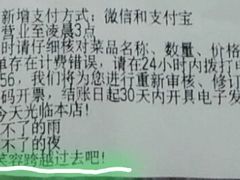 新增支付方式：微信和支付宝
营业至凌晨3点
时请仔细核对菜品名称、数量、价格
单存在计费错误，请在24小时内拨打电
56，我们将为您进行重新审核、修订
码开票，结账日起30天内开具电子发
今天光临本店！
不了的雨
不了的夜
笑容跨越过去吧！